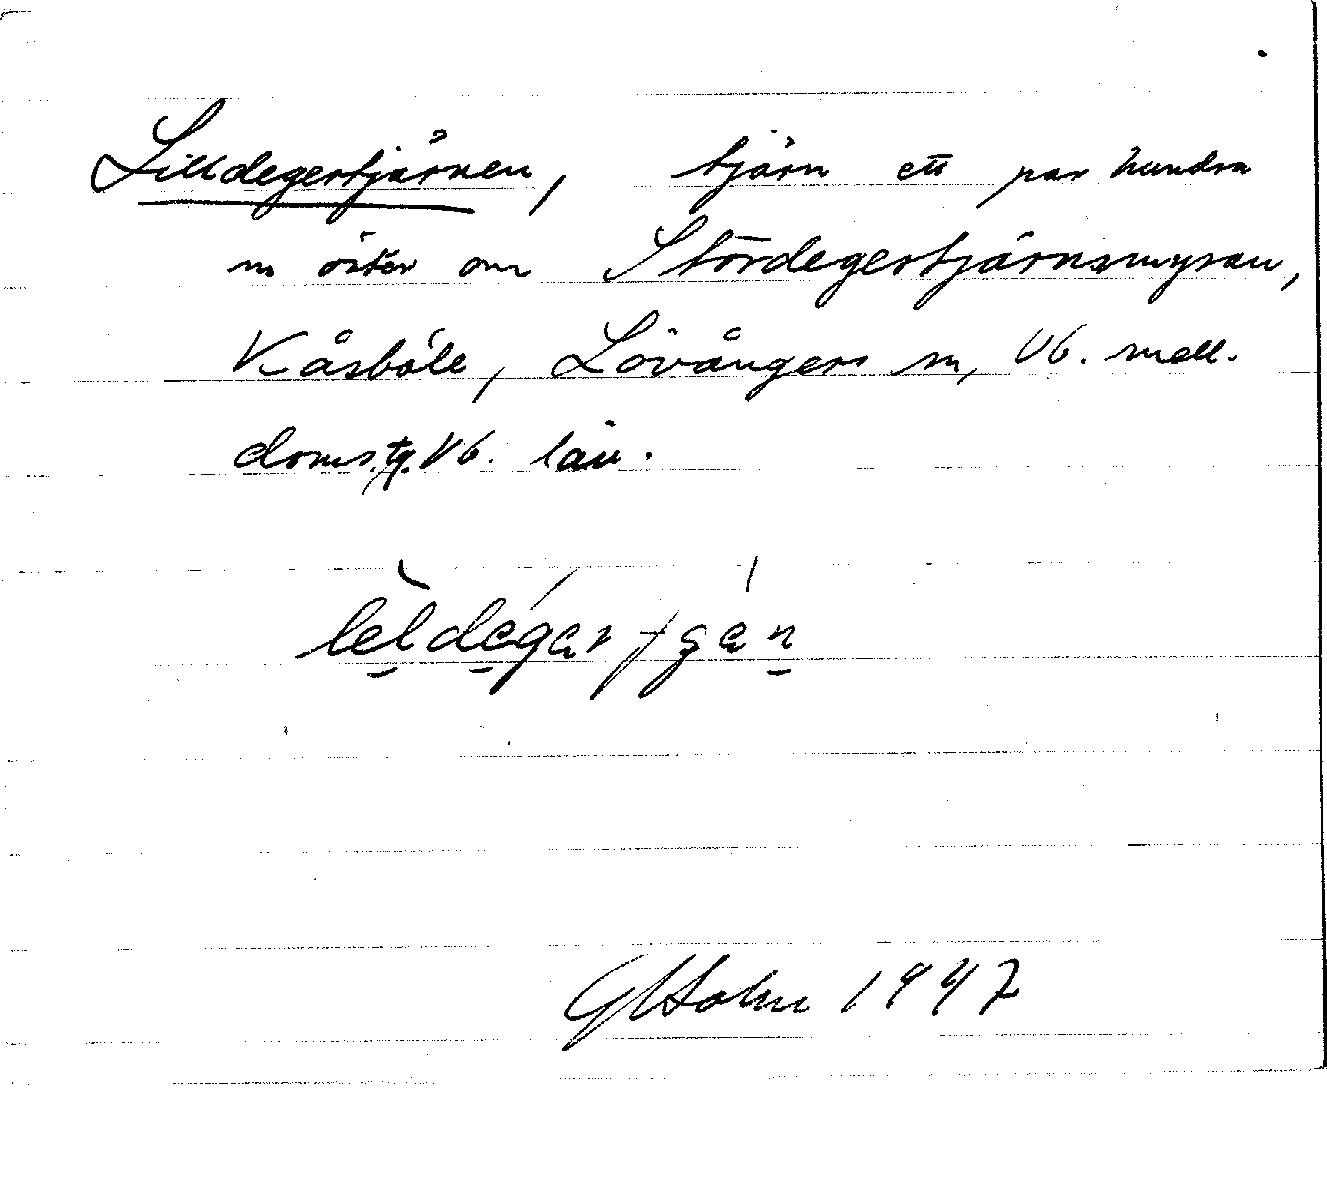 Lilldegertjärnen, tjärn ett par hundra
m öster om Stordegertjärnsmyran,
Kåsböle, Lövångers sn, Vb. mell.
doms.tg. Vb. län.
GHolm 1947